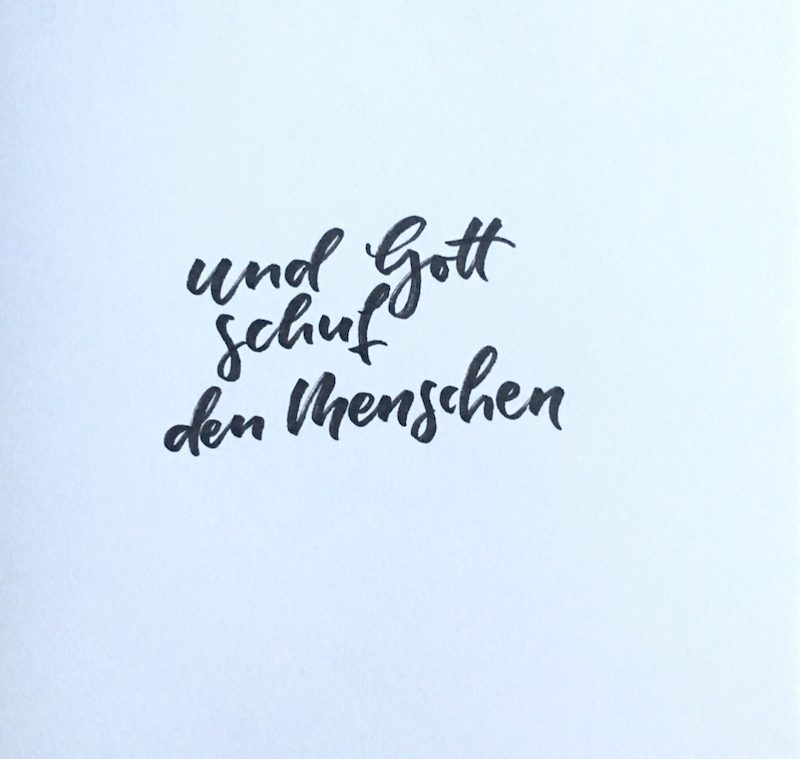 und Gott
schuf
den Menschen